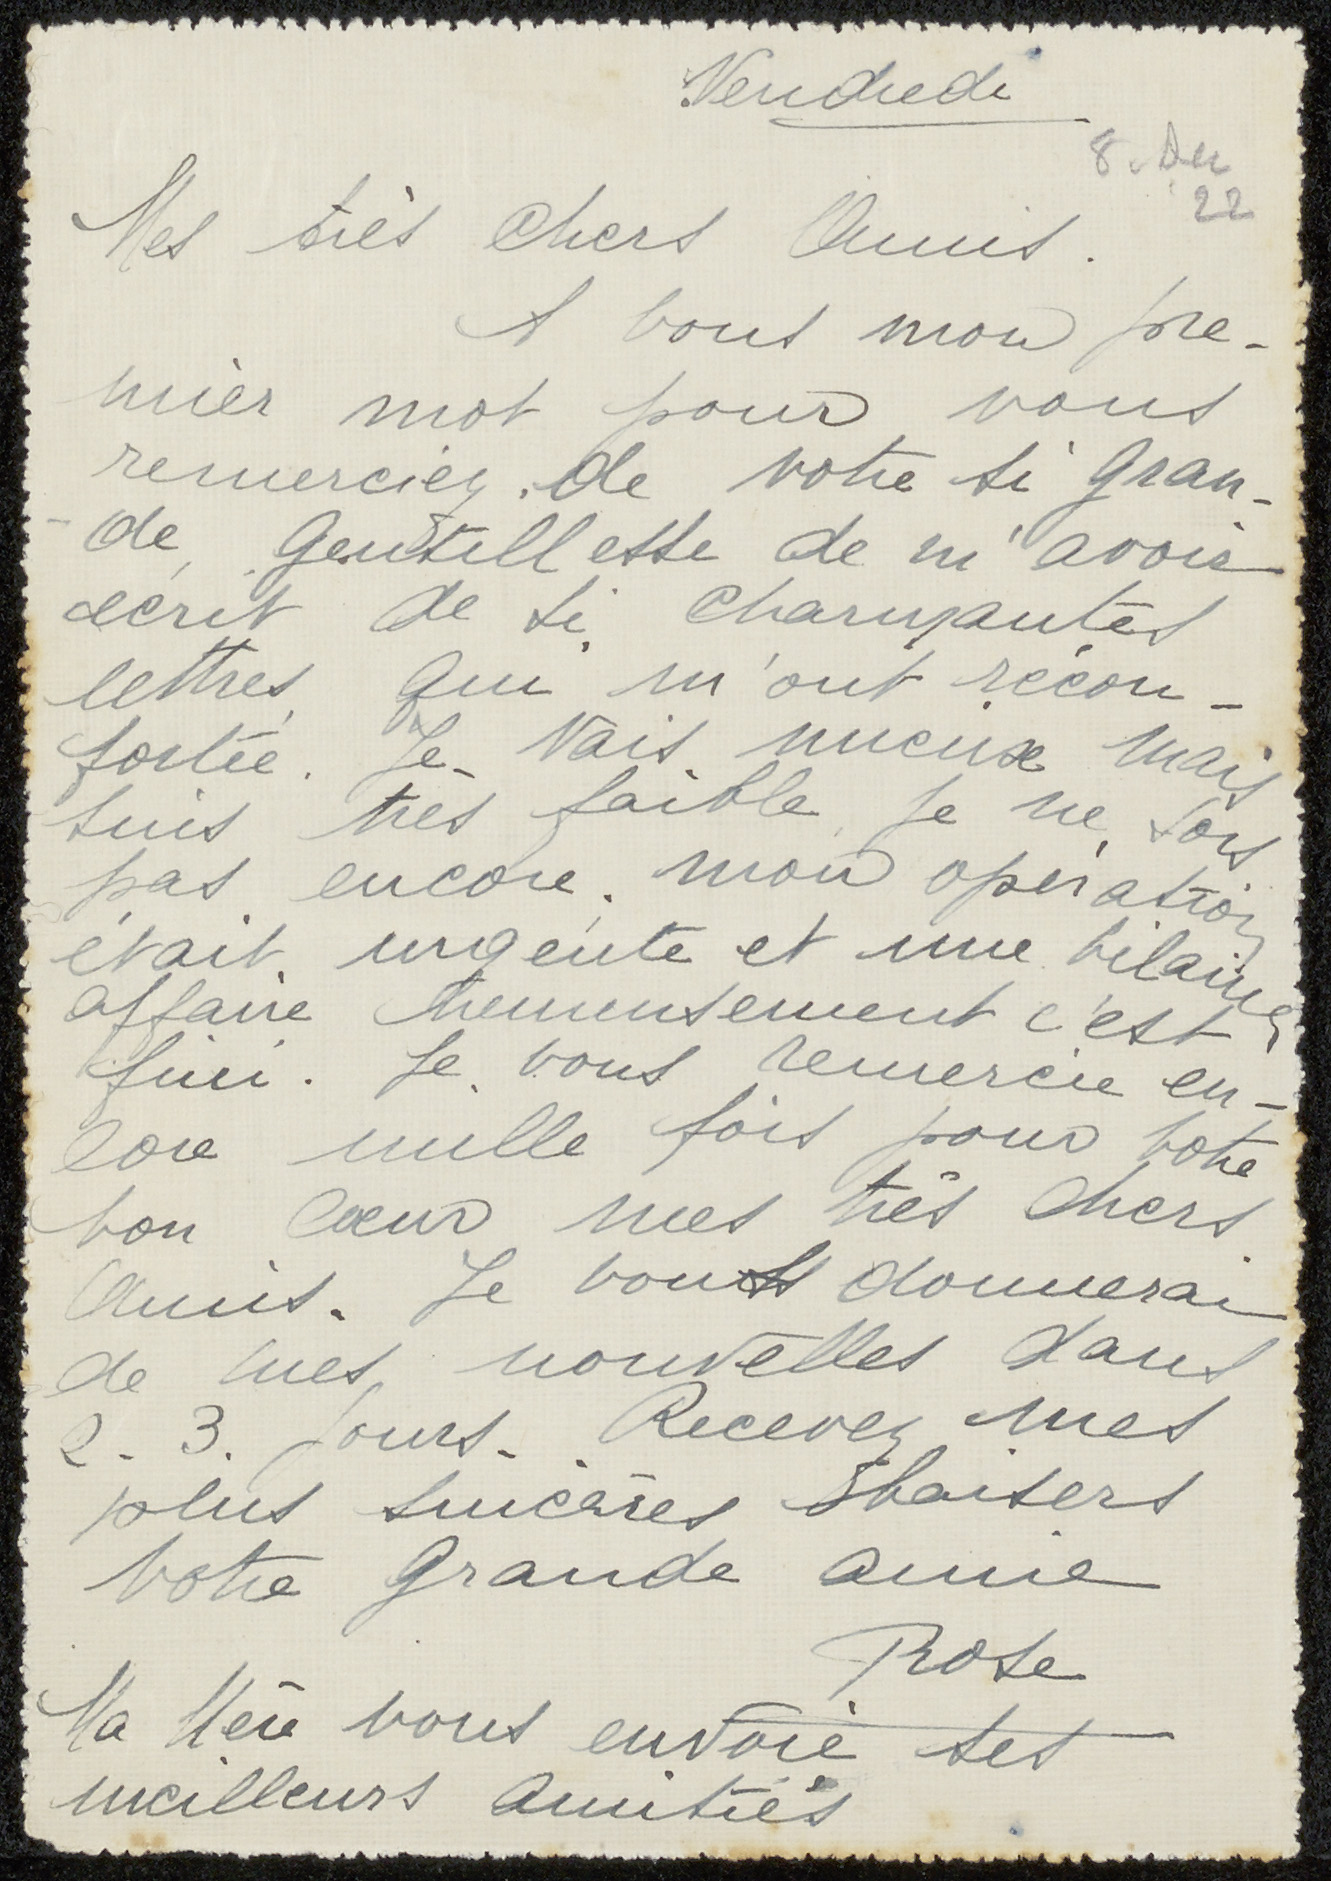 Vendredi
8. Dec
22
Mes très chers Amis.
A vous mon pre-
mier mot pour vous
remerciez. de votre si gran-
-de, gentillesse de m'avoir
écrit de si charmantes
lettres, qui m'ont récon-
fortée. Je vais mieux mais
suis très faible, je ne sors
pas encore. mon opération
était urgente et une vilaine
affaire heureusement c'est
fini. Je vous remercie en-
core mille fois pour votre
bon cœur mes très chers
Amis. Je vous donnerai
de mes nouvelles dans
2. 3. jours. Recevez mes
plus sincères baisers
votre grande amie
Rose
Ma Mère vous envoie ses
meilleurs amitiés